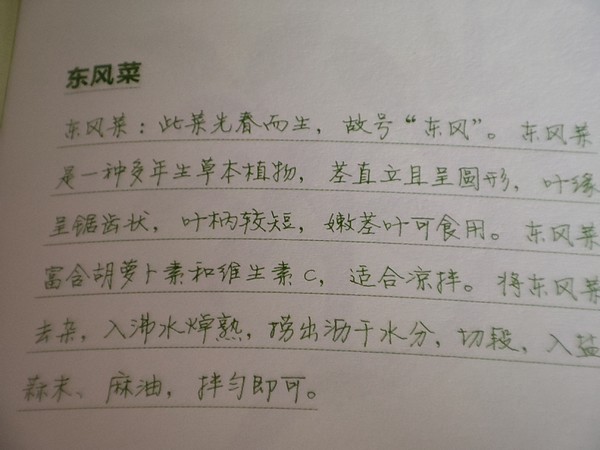 东风菜
东风菜：此菜先春而生，故号“东风”。东风菜
是一种多年生草本植物，茎直立且呈圆形，叶缘
呈锯齿状，叶柄较短，嫩茎叶可食用。东风菜
富含胡萝卜素和维生素C，适合凉拌。将东风菜
去杂，入沸水焯熟，捞出沥干水分，切段，入盐
蒜末、麻油，拌匀即可。